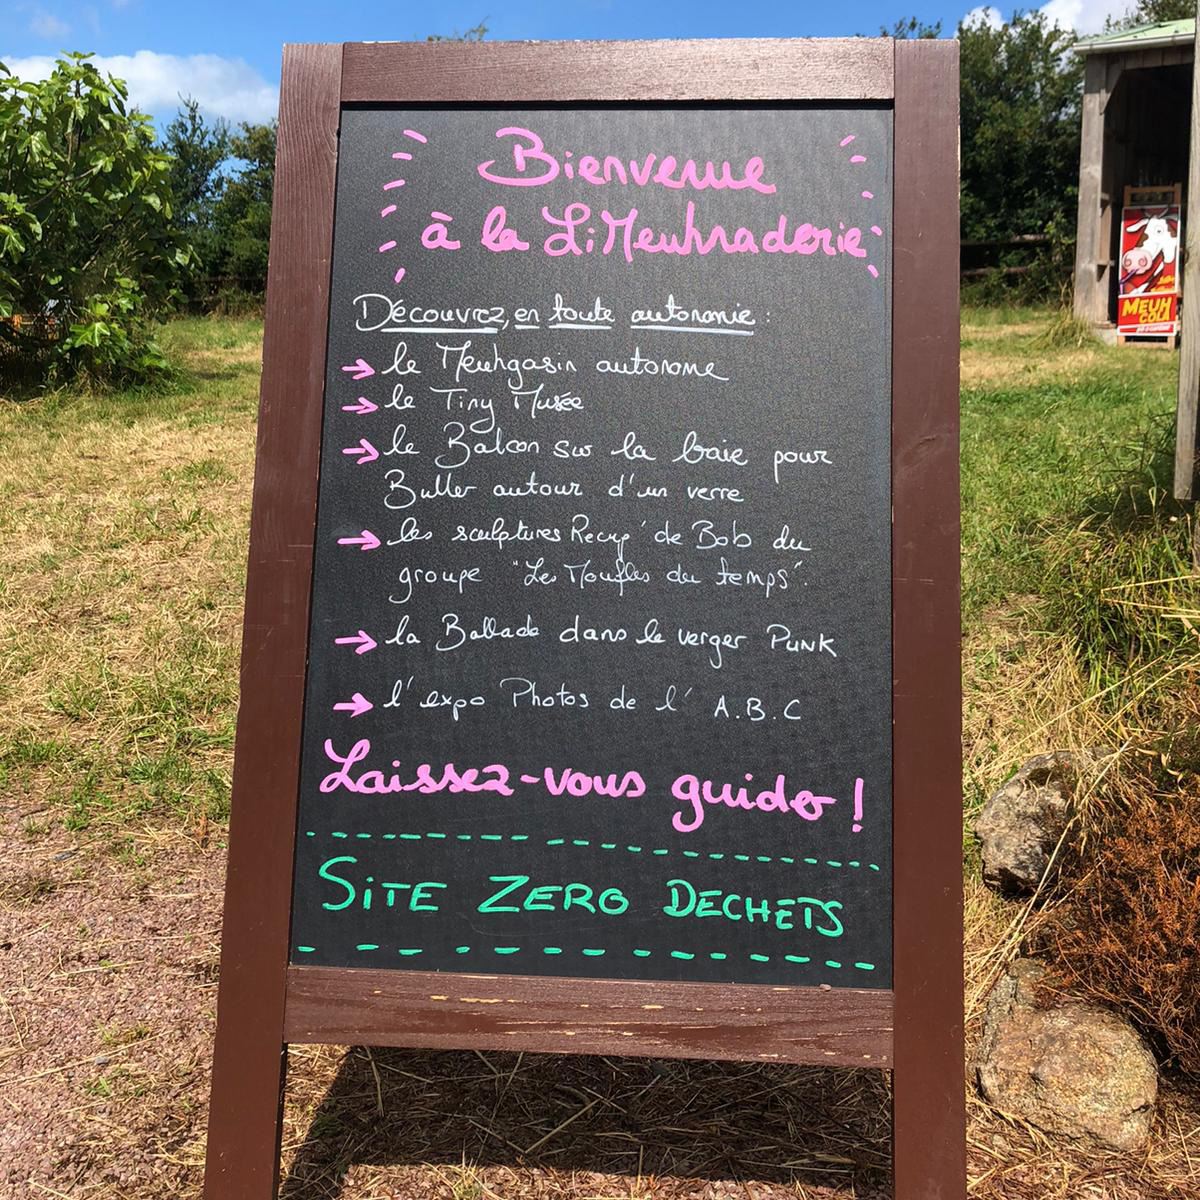 Bienvenue
à la LiMeuhnaderie
Découvrez, en toute autonomie :
→ le Meuhgasin autonome
→ le Tiny Musée
→ le Balcon sur la baie pour
Buller autour d'un verre
→ les sculptures Recup' de Bob du
groupe "Les Moufles du temps".
→ la Ballade dans le verger PUNK
→ l'expo Photos de l' A.B.C
Laissez-vous guider !
SiTE ZERO DECHETS
MEUH
COLA